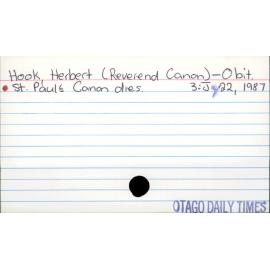 Hook, Herbert (Reverend Canon)-Obit.
• St. Paul's Canon dies. 3: Jy 22, 1987
OTAGO DAILY TIMES